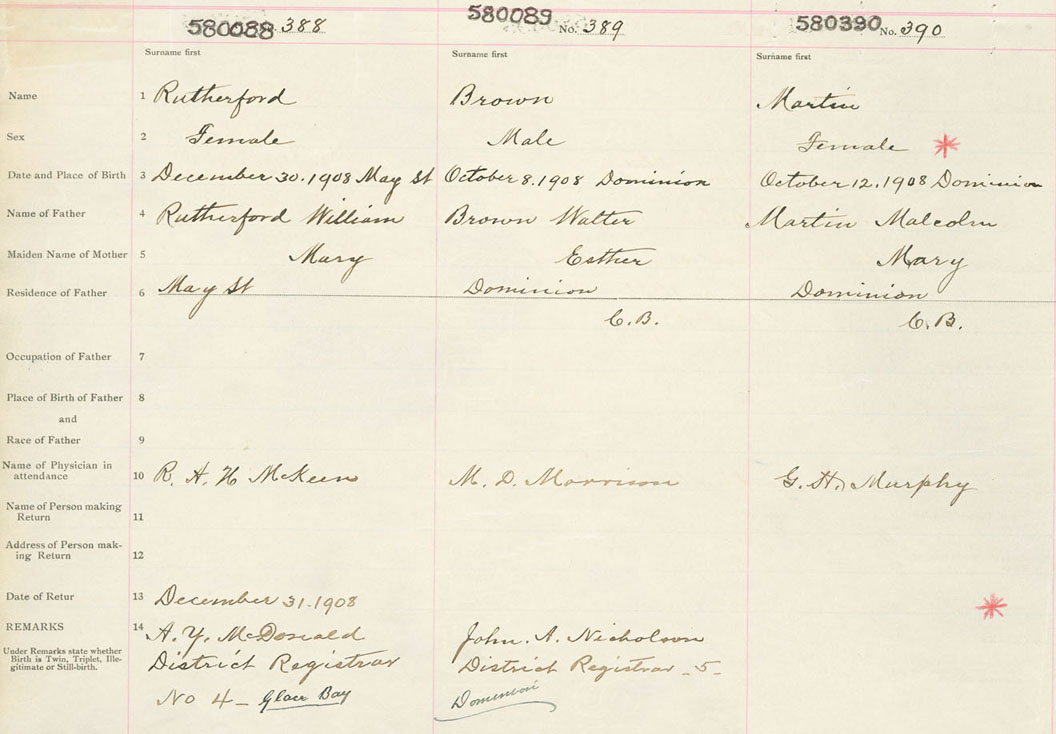 580088 388 580089 No. 389 580390 No. 390
Surname first Surname first Surname first
Name 1 Rutherford Brown Martin
Sex 2 Female Male Female *
Date and Place of Birth 3 December 30. 1908 May St October 8. 1908 Dominion October 12. 1908 Dominion
Name of Father 4 Rutherford William Brown Walter Martin Malcolm
Maiden Name of Mother 5 Mary Esther Mary
Residence of Father 6 May St Dominion Dominion
C.B. C.B.
Occupation of Father 7
Place of Birth of Father 8
and
Race of Father 9
Name of Physician in
attendance 10 R. H. H McKeen M. D. Morrison G. H. Murphy
Name of Person making
Return 11
Address of Person mak-
ing Return 12
Date of Retur 13 December 31-1908 *
REMARKS 14 A. Y. McDonald John. A. Nicholson
Under Remarks state whether
Birth is Twin, Triplet, Ille-
gitimate or Still-birth.
District Registrar District Registrar - 5 -
No 4 - Glace Bay Dominion